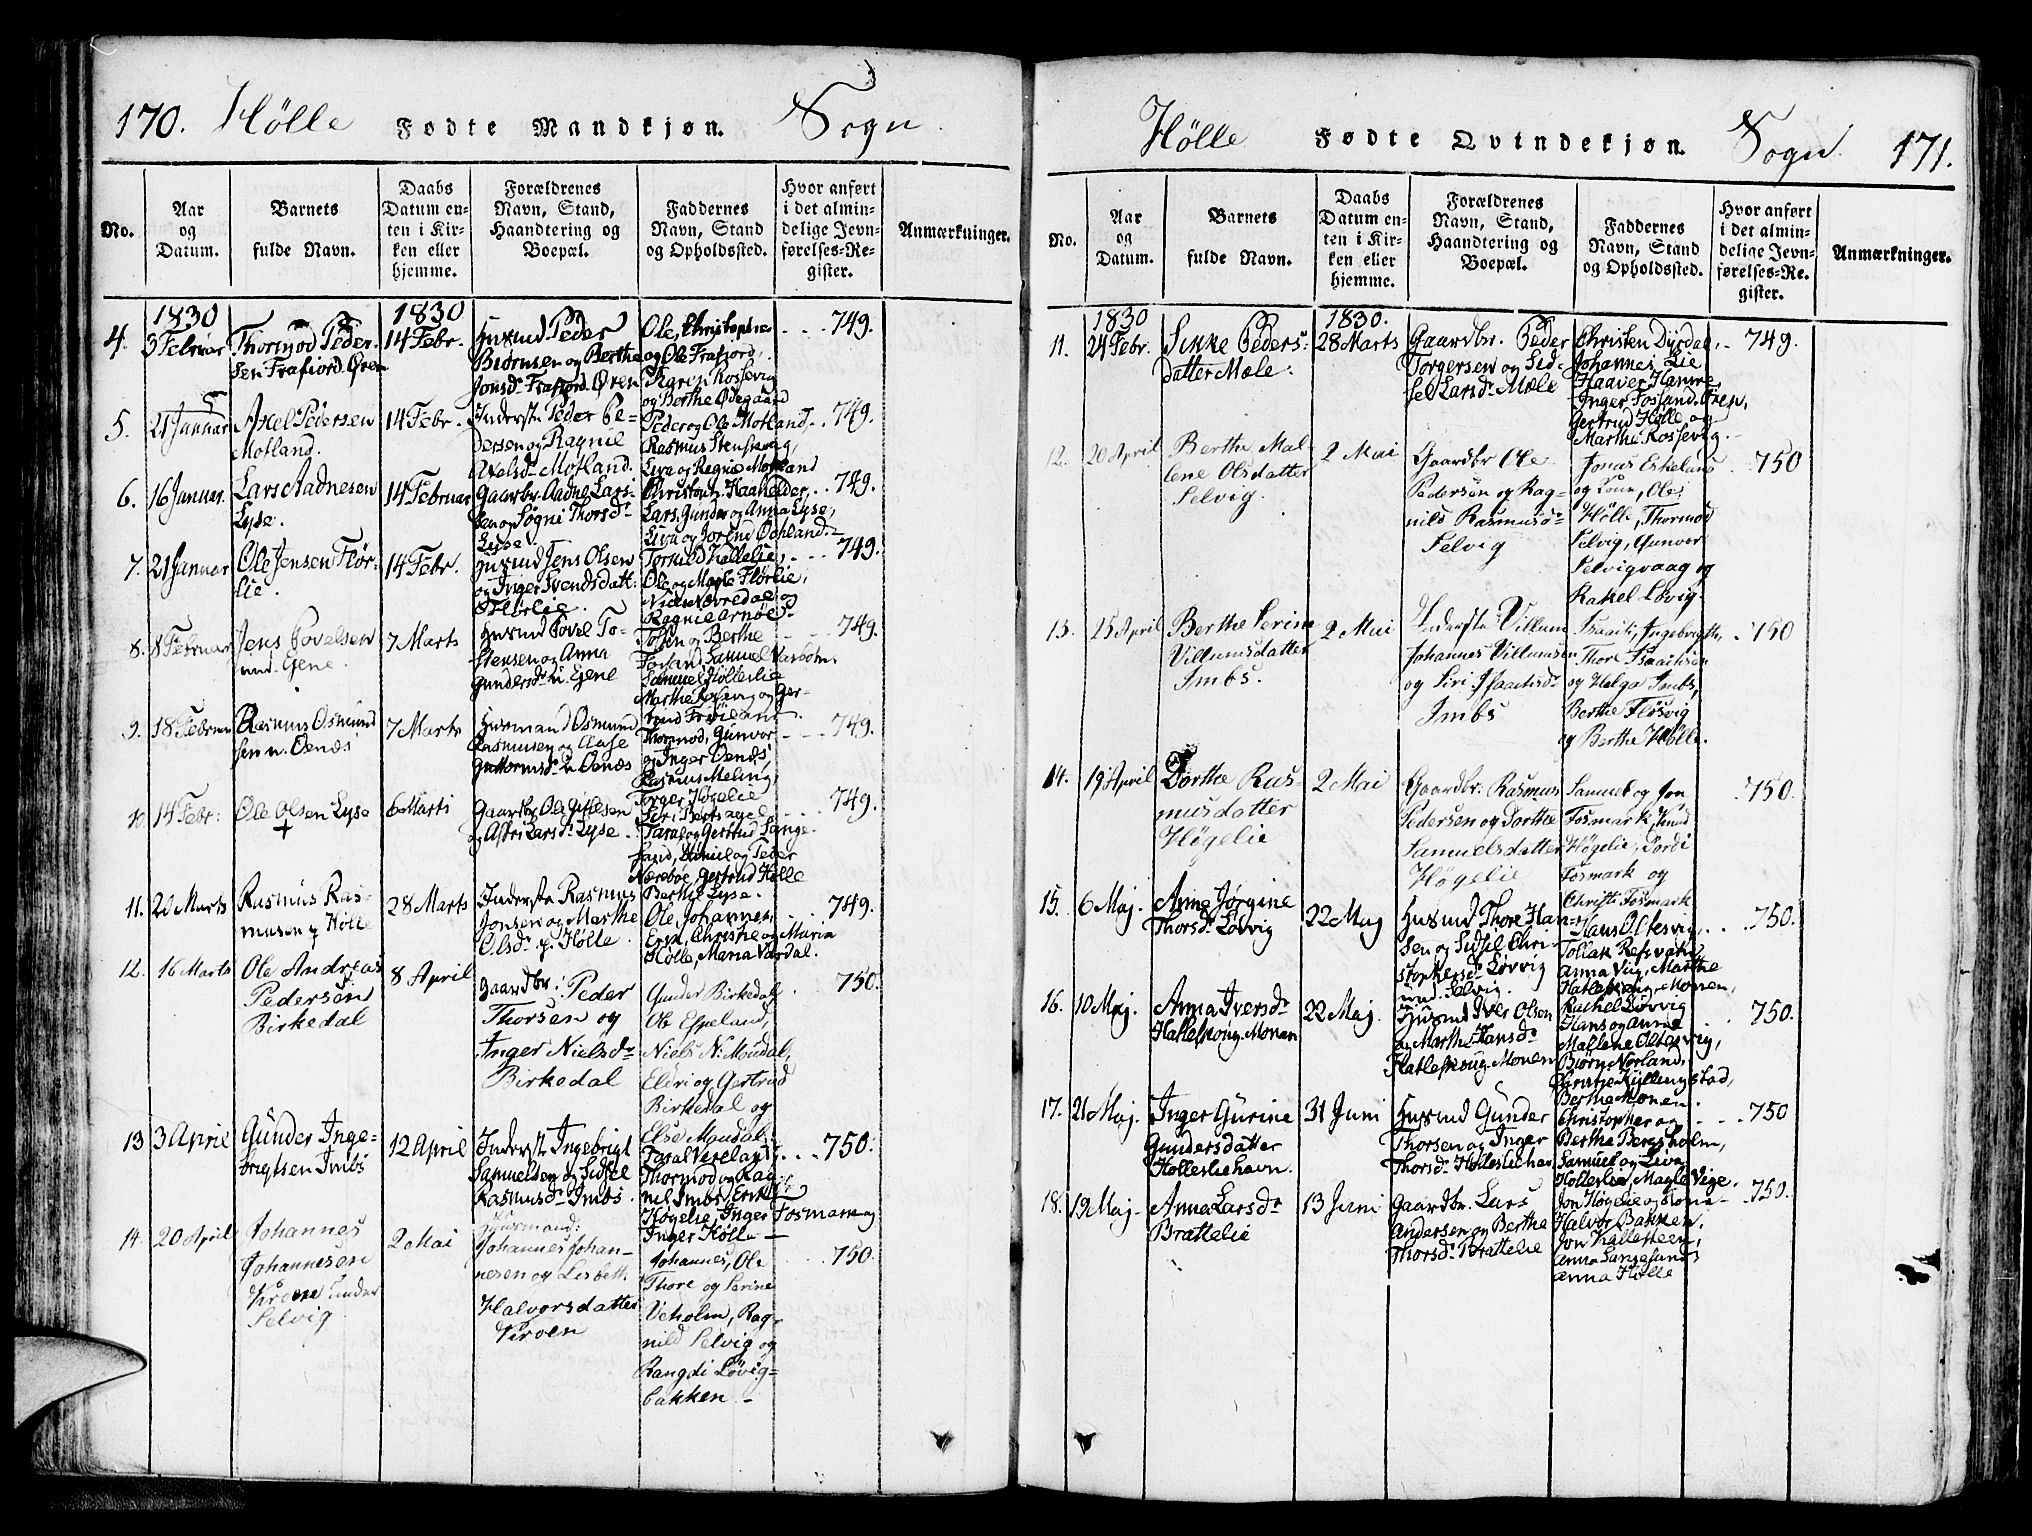 170. Hölle Fødte Mandkjøn. Sogn
No.
Aar
og
Datum.
Barnets
fulde Navn.
Daabs
Datum en-
ten i Kir-
ken eller
hjemme.
Forældrenes
Navn, Stand,
Haandtering og
Boepæl.
Faddernes
Navn, Stand
og Opholdssted.
Hvor anført
i det almin-
delige Jevn-
førelses-Re-
gister.
Anmærkninger.
1830
1830
4.
3 Februar
Thormod Peder-
sen Frafiord. Øren
14 Febr.
Husmd Peder
Biørnsen og Berthe
Jonsdr Frafjord Øren
Ole, Christopher
og Ole Frafiord,
Karen Rossevig
og Berthe Ødegaard
749.
5.
21 Januar
Axel Pedersen
Motland.
14 Febr.
Inderst. Peder Pe-
dersen og Ragnie
Axelsdr Motland.
Peder og Ole Motland,
Rasmus
Liva og Regnie Motland
749.
6.
16 Januar.
Lars Aadnesen
Lyse.
14 Februar
Gaardbr. Aadne Lars-
sen og Søgni Thorsdr
Lyse.
Christoph. Haaheller,
Lars, Gunder og Anna Lyse,
Liva og Jorend
749.
7.
21 Januar
Ole Jensen Flør-
lie.
14 Febr.
Husmd Jens Olsen
og Inger Svendsdatt.
Flørlie.
Torkild Kallelie,
Ole og Magle Flørlie,
Niels Nævredal og
Ragnie Arnøe
749.
8.
8 Februar
Jens Povelsen
und. Eiene.
7 Marts
Husmd Povel To-
stensen og Anna
Gundersdr u. Eiene
Tosten og Berthe
Fossand, Samuel
Samuel Høllerlie
Marthe Rossevig og Ger-
trud Frøiland
749.
9.
18 Februar
Rasmus Osmund
sen u. Oenæs
7 Marts
Husmand Osmund
Rasmusen og Aase
Guttormsdr u. Oenæs
Thormod, Gunvor
og Inger Oenæs,
Rasmus Meling,
Torger Høgelie
749.
10
14 Febr:
Ole Olsen Lyse
+
6 Marts
Gaardbr. Ole Gitlesen
og Astri Larsdr Lyse.
Siri Bertsagel
Taral og Gertrud Sange-
sand, Daniel og Peder
Næreboe, Gertrud Hølle
749.
11.
20 Marts
Rasmus Ras-
musen p Hölle
28 Marts
Inderste Rasmus
Jonsen og Marthe
Olsdr p. Hölle.
Berthe Lyse.
Ole, Johannes,
Erik, Christie og Maria
Hölle, Maria Vasdal.
749.
12.
16 Marts
Ole Andreas
Pedersen
Birkedal
8 April
Gaardbr: Peder
Thorsen og
Inger Nielsdr
Birkedal
Gunder Birkedal,
Ole Espeland,
Niels N. Moudal,
Eleri og Gertrud
Birkedal og
Else Moudal.
750.
13
3 April
Gunder Inge-
brigtsen Imbs
12 April
Inderst. Ingebrigt
Samuelsen og Sidsel
Rasmusdr Imbs.
Taral Vereland,
Thormod og Rag-
nil Imbs, Erik
Høgelie, Inger Fosmark og
Inger Hölle
750.
14.
20 April
Johannes
Johannesen
Kroen under
Selvig
2 Mai
Huusmand:
Johannes Johan-
nesen og Lisbeth
Halvorsdatter
Kroen
Johannes, Ole
Thore og Serine
Veholm, Rag-
nild Selvig og
Rangdi Løvig-
bakken.
750.
Hölle Fødte Qvindekjøn. Sogn. 171.
No.
Aar
og
Datum.
Barnets
fulde Navn.
Daabs
Datum en-
ten i Kir-
ken eller
hjemme.
Forældrenes
Navn, Stand,
Haandtering og
Boepæl.
Faddernes
Navn, Stand
og Opholdssted.
Hvor anført
i det almin-
delige Jevn-
førelses-Re-
gister.
Anmærkninger.
1830
1830.
11.
24 Febr.
Sikke Peders-
datter Mæle.
28 Marts
Gaardbr. Peder
Torgersen og Sid-
sel Larsdr Mæle
Christen Dyrdal,
Johannes Lie
Haaver Hamre,
Inger Fossand. Øren,
Gertrud Hölle og
Marthe Rossevig.
749.
12.
20 April
Berthe Mal-
lene Olsdatter
Selvig.
2 Mai
Gaardbr Ole
Pedersen og Rag-
nild Rasmusdr
Selvig
Jonas Eskeland
og Kone, Ole
Hölle, Thormod
Selvig, Gunvor
Selvigvaag og
Rakel Løvig.
750
13.
25 April
Berthe Serine
Villumsdatter
Imbs.
2 Mai
Inderste Villum
Johannes Villumsen
og Siri Isaachsdr
Imbs
Isaach, Ingebrigth,
Thore Isaachsen
og Helga Imbs,
Berthe Fløsvig
og Berthe Hölle.
750
14.
19 April
Dorthe Ras-
musdatter
Høgelie
2 Mai
Gaardbr: Rasmus
Pedersen og Dorthe
Samuelsdatter
Høgelie
Samuel og Jon
Fosmark, Knud
Høgelie, Tordi
Fosmark og
Christi Fosmark
750.
15.
6 Maj.
Anne Jørgine
Thorsdr Løvvig
22 Maj
Husmd Thore Han-
sen og Sidsel Chri-
stophersdr Løvvig
und. Selvig.
Hans Oltesvig,
Tollak Refsvatn,
Anna Viig, Marthe
Hatleskoug Monen,
Rachel Løvvig
750.
16.
10 Maj.
Anna Iversdr
Hatleskoug. Monen
22 Maj.
Husmd Iver Olsen
og Marthe Hansdr
Hatleskoug Monen
Hans og Anne
Mallene Oltesvig,
Biørn Norland,
Christie Kyllingstad,
Berthe Monen.
750.
17.
21 Maj.
Inger Gurine
Gundersdatter
Høllesliehavn.
31 Juni
Husmd Gunder
Thorsen og Inger
Thorsdr Hølleslichav
Christopher og
Berthe Bergsholm,
Samuel og Liva
Høllerlie, Magle Vige.
750
18.
19 Maj.
Anna Larsdr
Brattelie
13 Juni
Gaardbr. Lars
Andersen og Berthe
Thorsdr Brattelie
Jon Høgelie og Kone
Halvor Bakken,
Jon Kallesteen,
Anna Sangesand,
Anna Hölle
750.